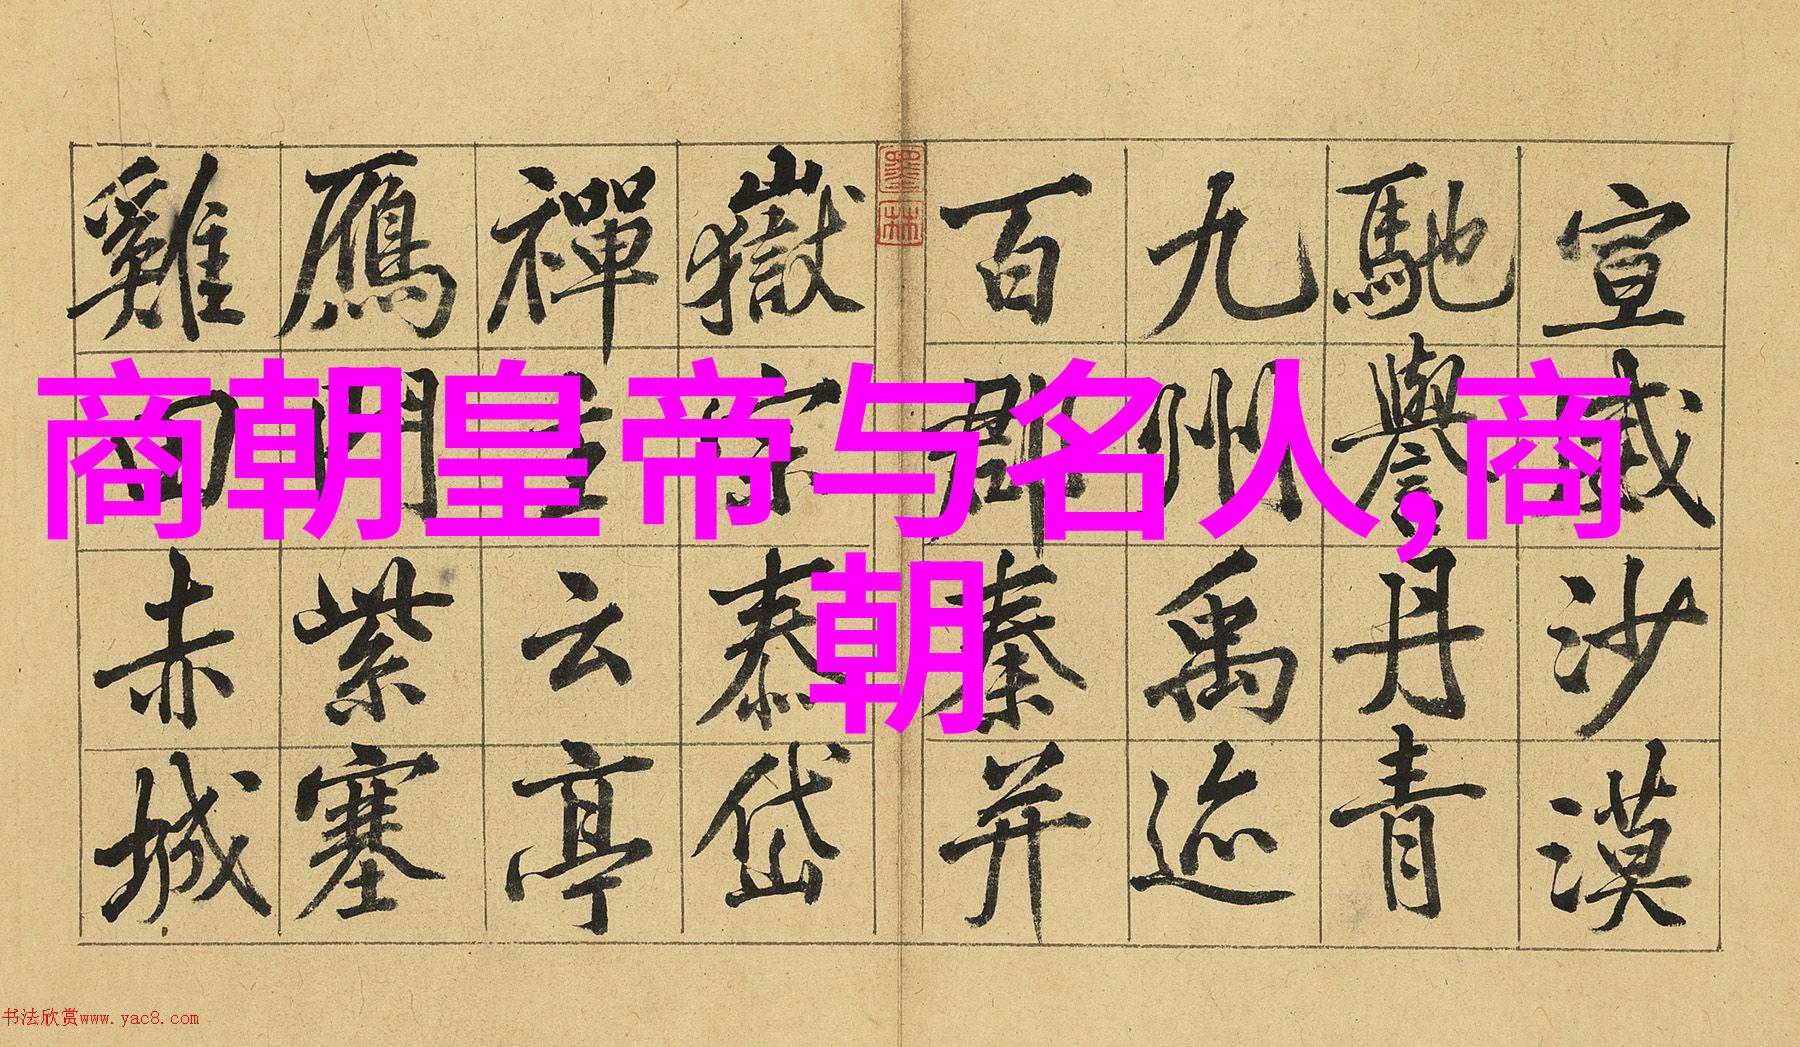 商朝皇帝与名人,商
朝
宣威沙漠
馳譽丹青
九州禹迹
百郡秦并
墨林
嶽宗泰岱
禪主云亭
鴈門紫塞
雞田赤城
书法欣赏www.yac8.com